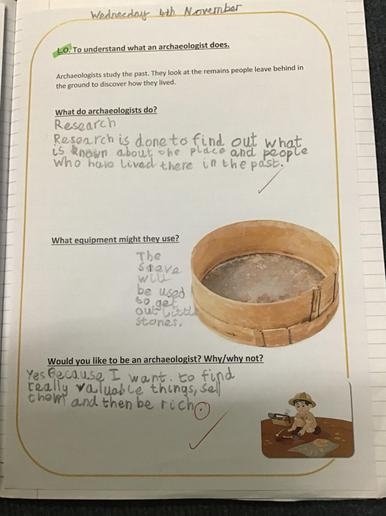 Wednesday 4th November
L.O. To understand what an archaeologist does.
Archaeologists study the past. They look at the remains people leave behind in
the ground to discover how they lived.
What do archaeologists do?
Research
Research is done to find out what
is known about the place and people
who have lived there in the past.
What equipment might they use?
The
seave
will
be used
to get
out little
stones.
Would you like to be an archaeologist? Why/why not?
Yes Because I want. to find
really valuable things, sell
them and then be rich.